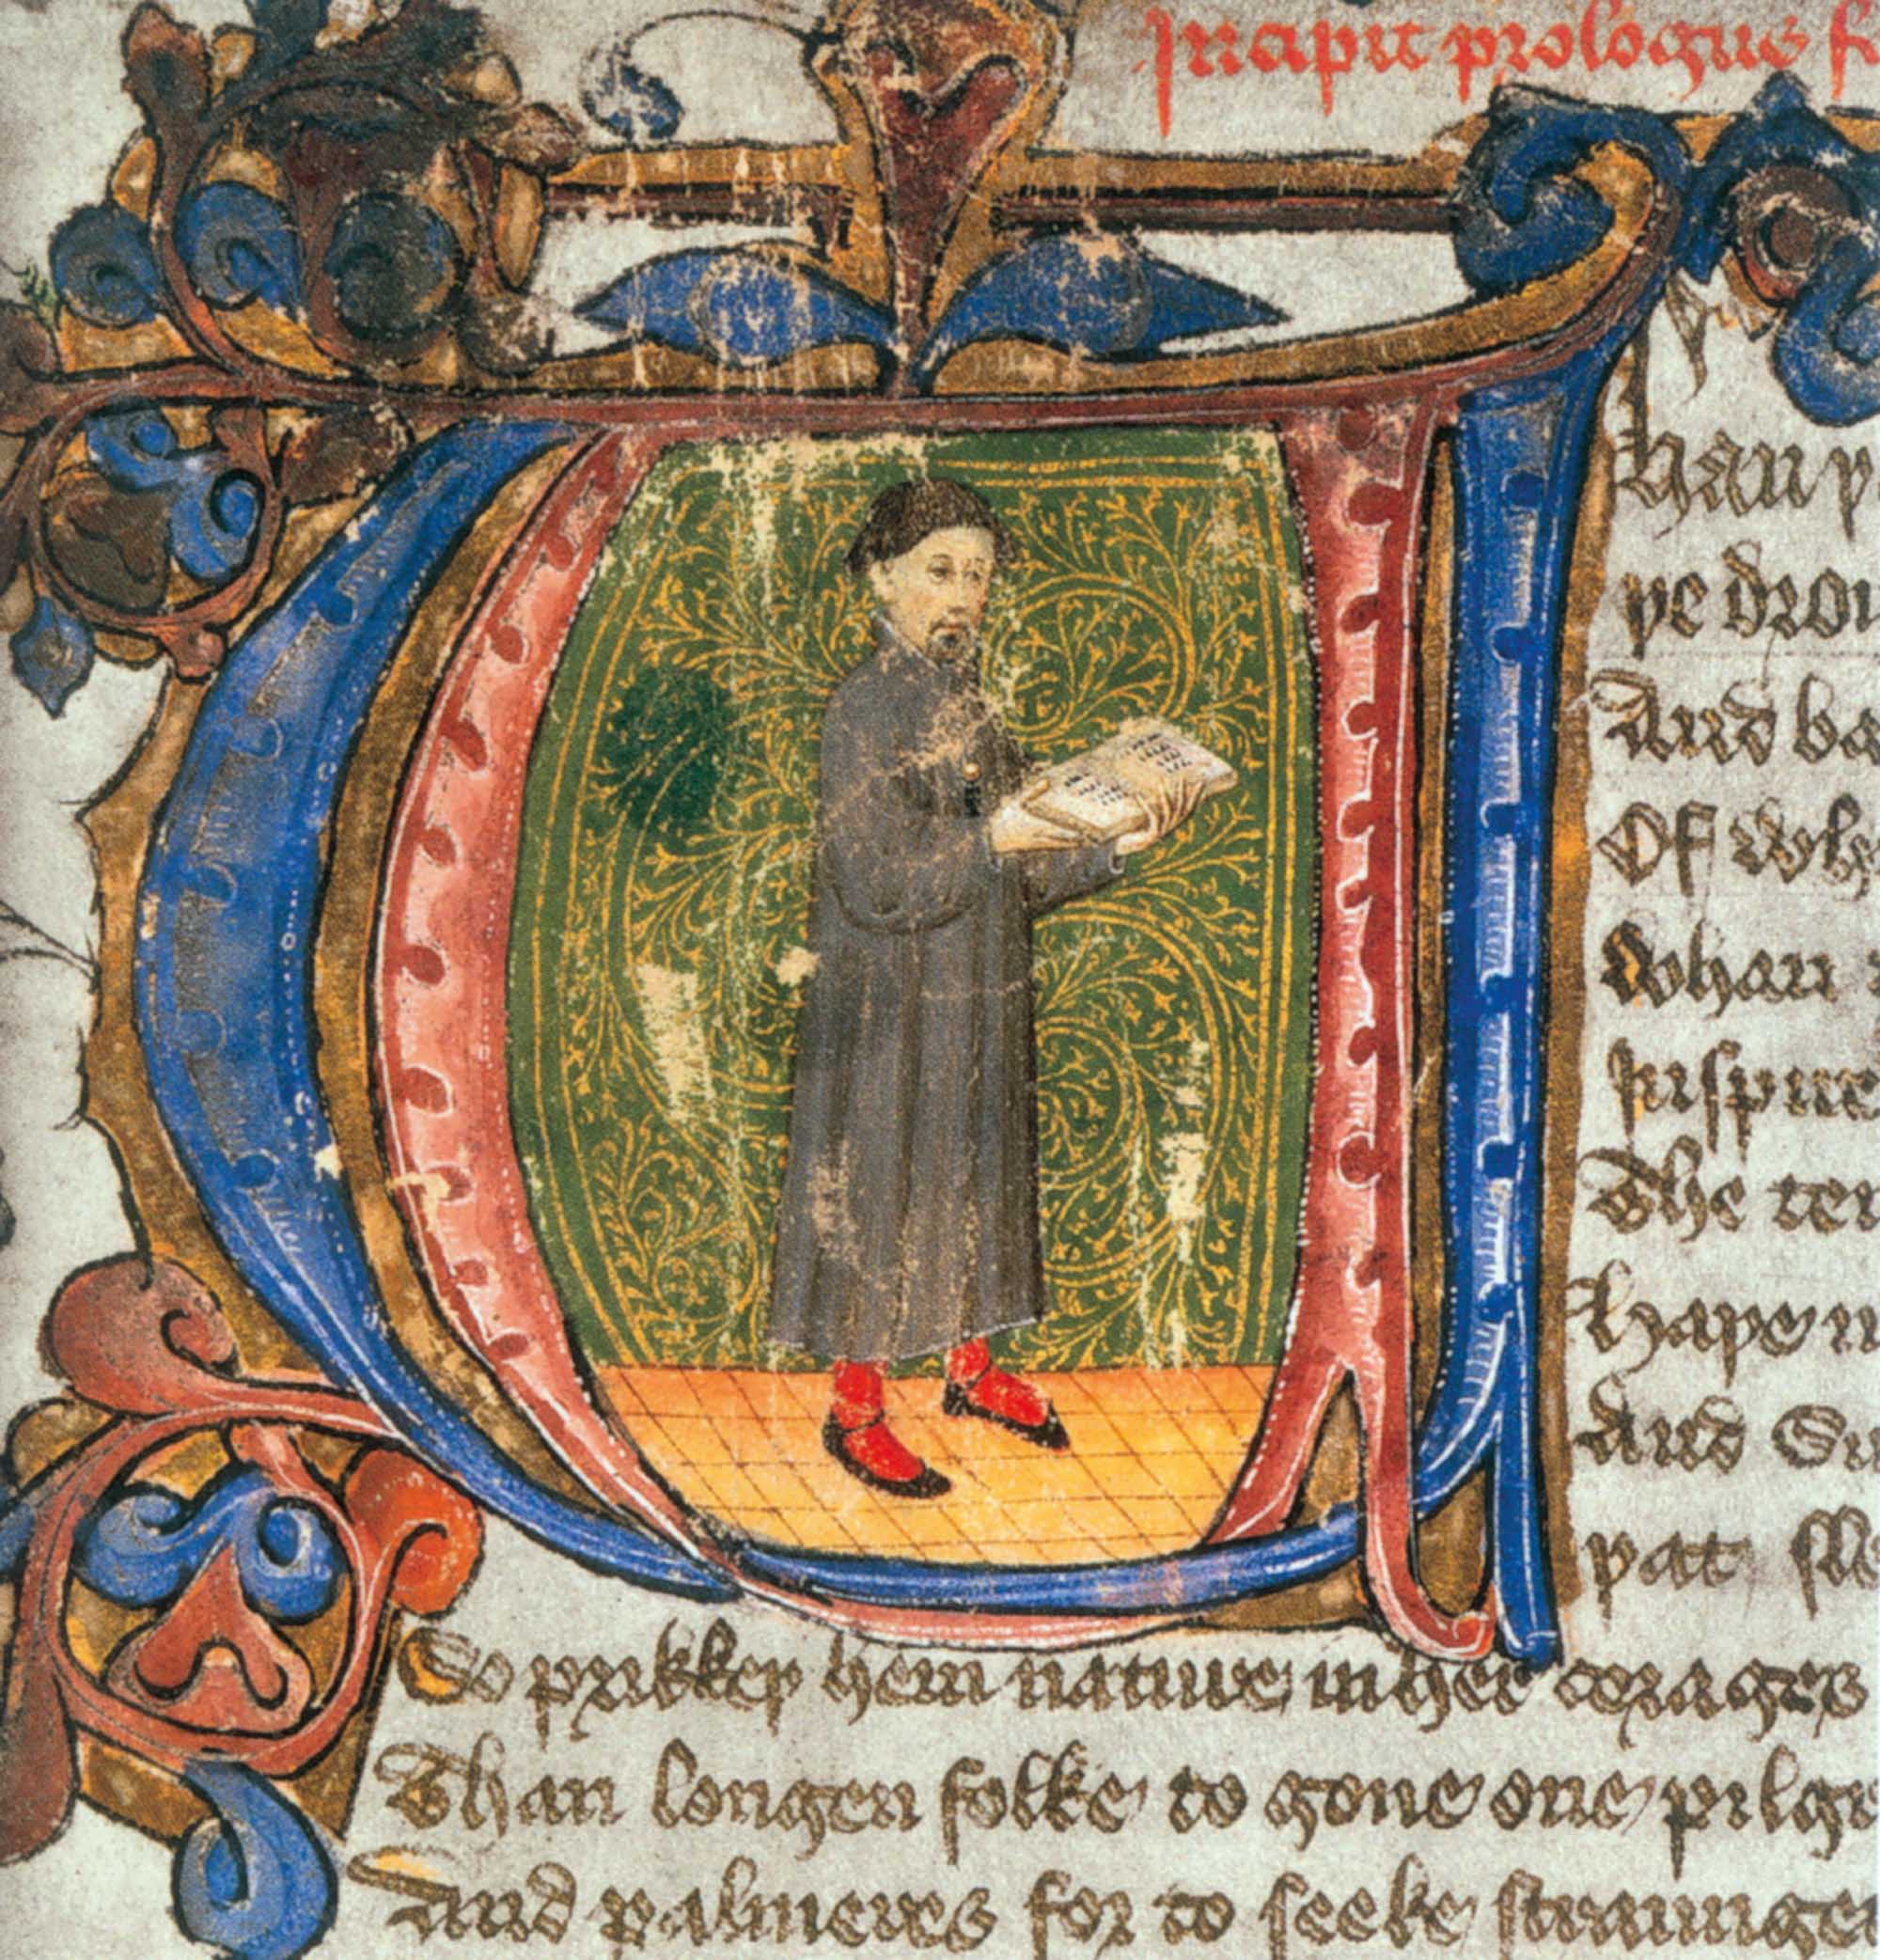 Incipit prologus f
Whan þ
þe drou
And ba
Of wh
Whan
Inspire
The ten
haþe
And Sm
þat sle
So prikkeþ hem nature in her corages
Than longen folke to gone one pilgr
And palmeres for to seeke straunge